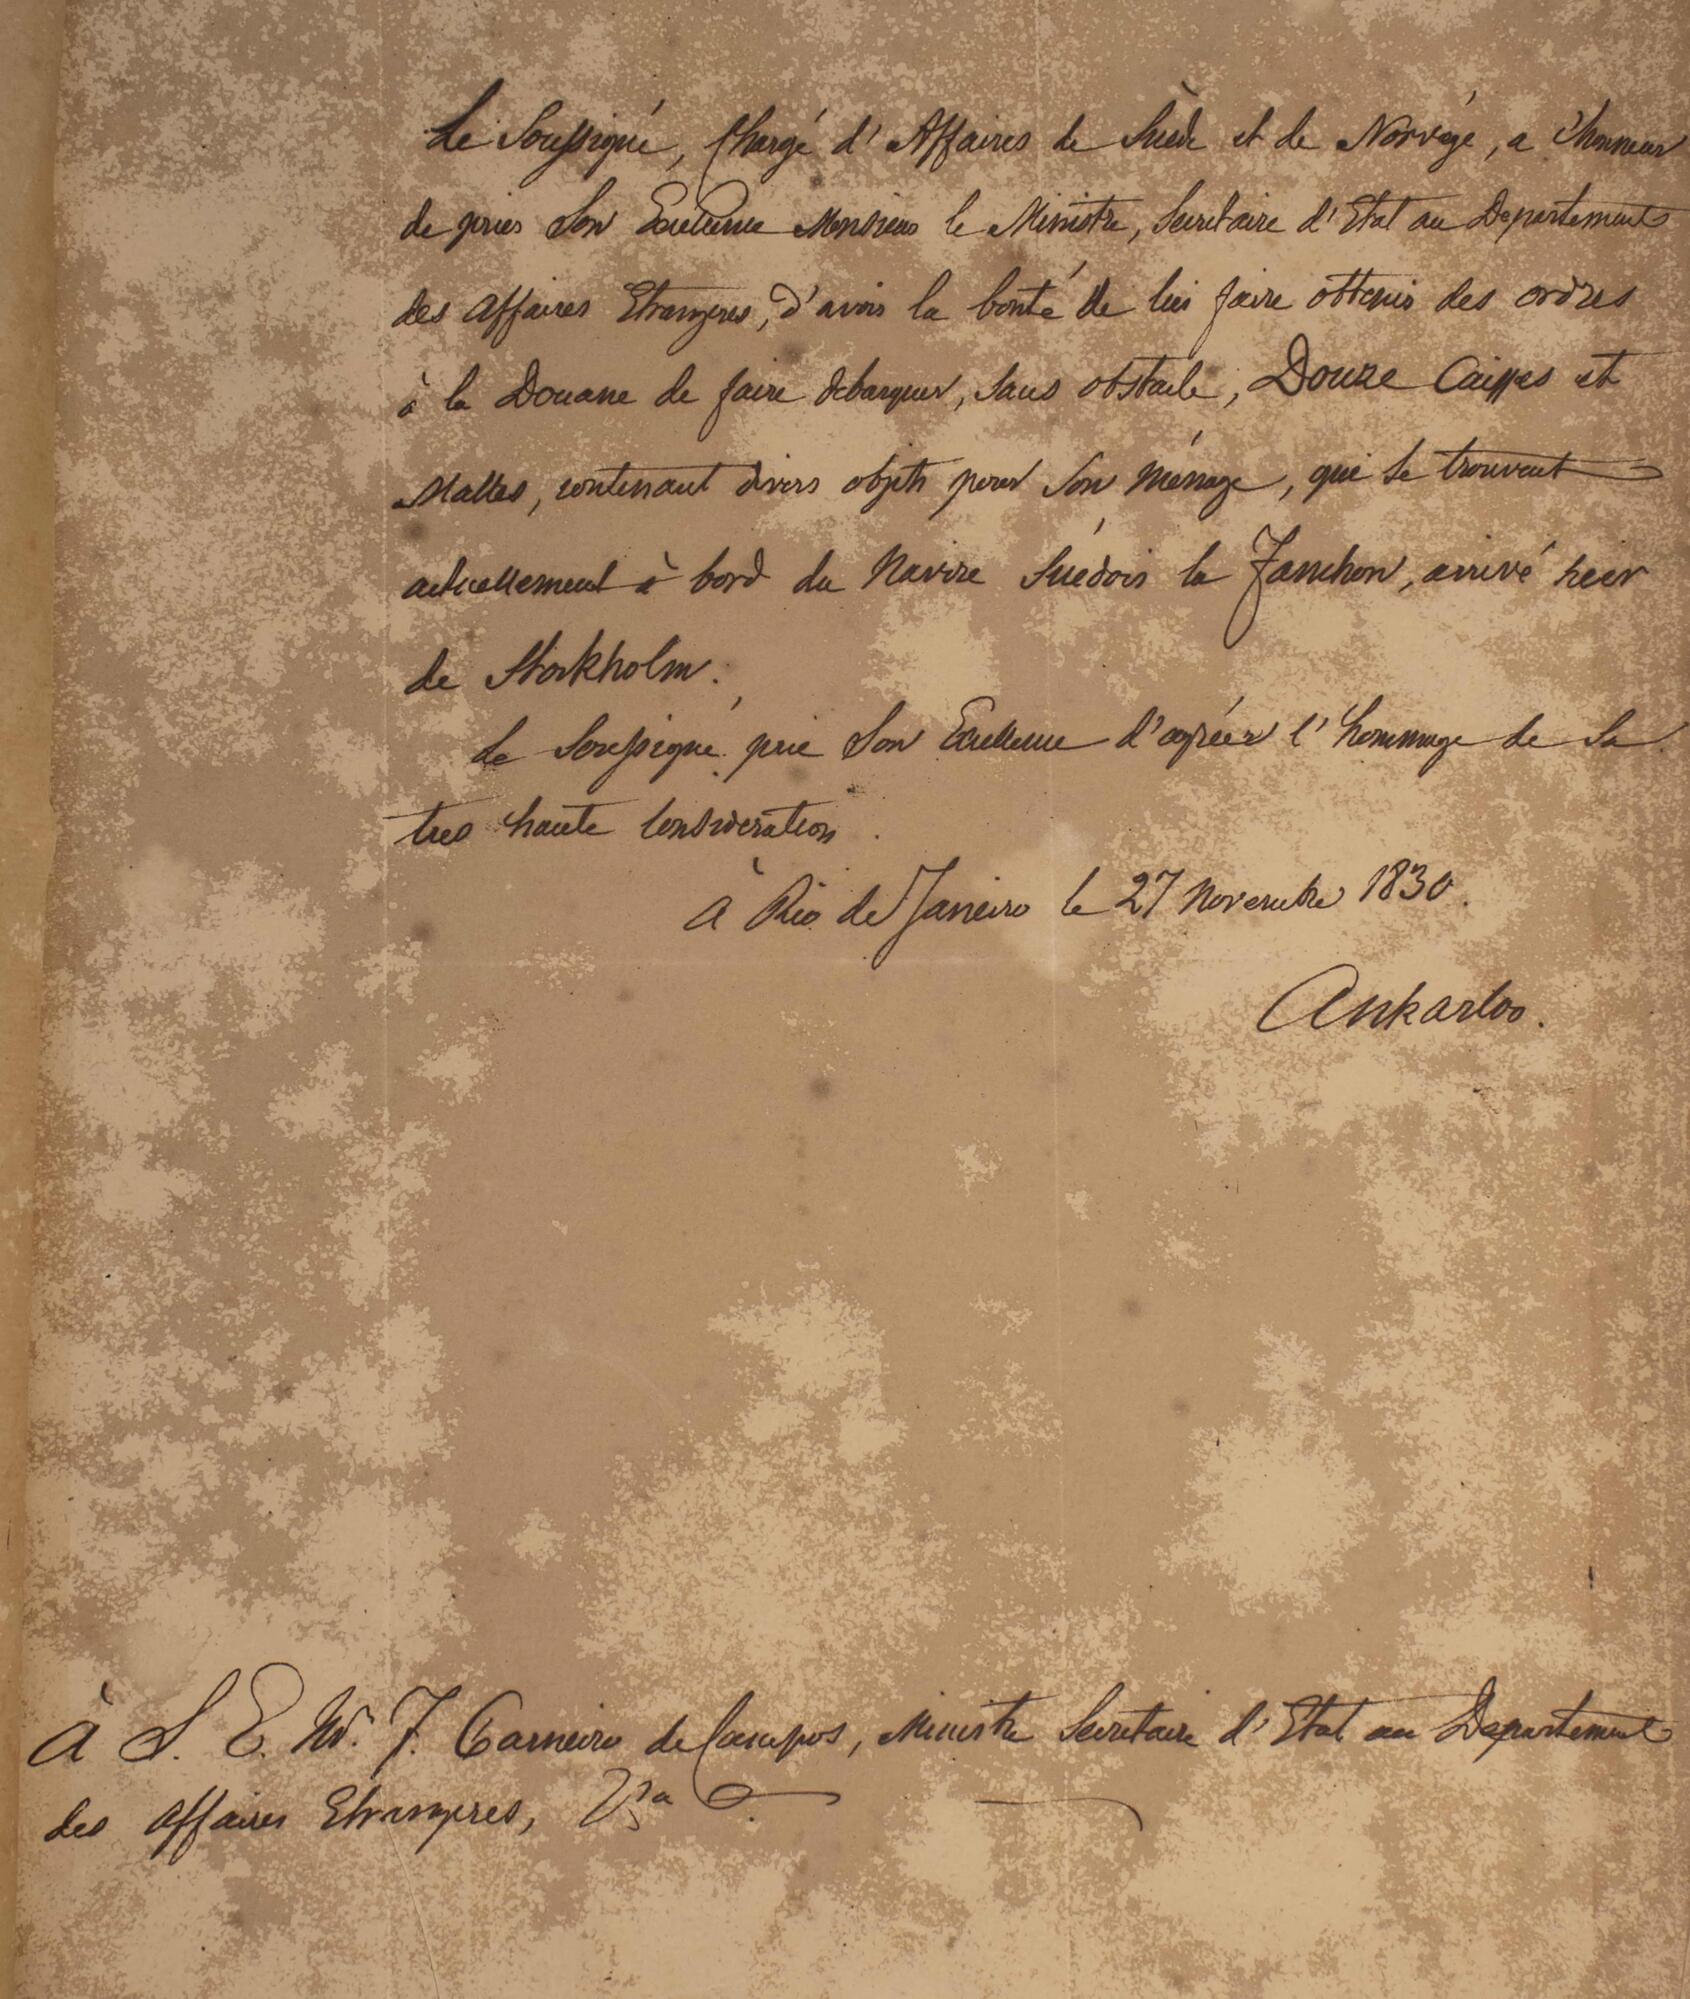 Le Soussigné, Chargé d'Affaires de Suède et de Norvège, a l'honneur
de prier Son Excellence Monsieur le Ministre, Secretaire d'Etat au Departement
des Affaires Etrangeres, d'avoir la bonté de lui faire obtenir des ordres
à la Douane de faire debarquer, sans obstacle, Douze Caisses et
Malles, contenant divers objets pour Son Ménage, qui se trouvent
actuellement à bord du Navire Suédois la Fanchon, arrivé hier
de Stockholm.
Le Soussigné prie Son Excellence d'agréer l'hommage de Sa
tres haute Consideration.
à Rio de Janeiro le 27 Novembre 1830.
Ankarloo.
à S. E. Mr. F. Carneiro de Campos, Ministre Secretaire d'Etat au Departement
des Affaires Etrangeres,